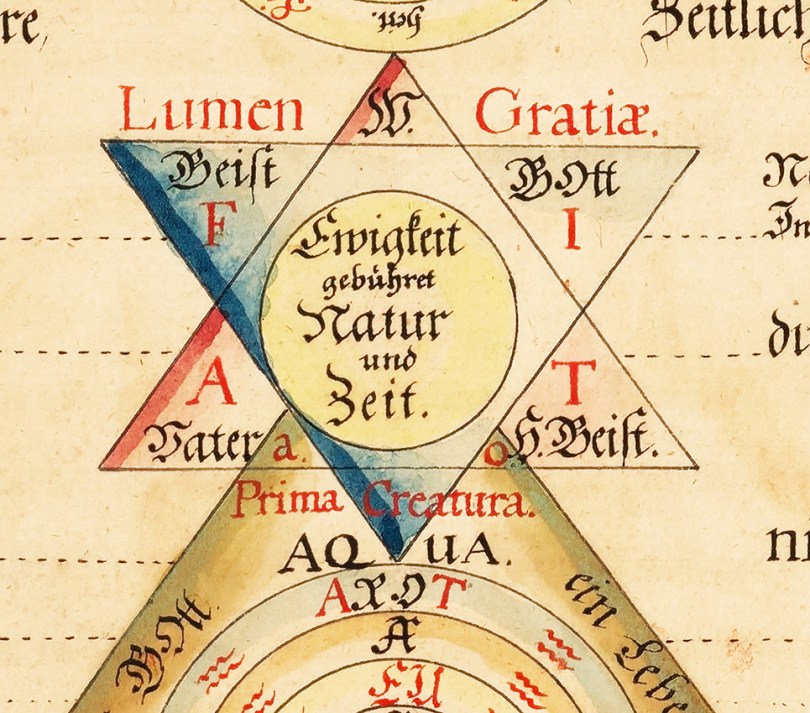 re,
Zeitlich
hett
W.
Lumen Gratiæ.
Geist GOtt
F I
Ewigkeit
gebühret
Natur
und
Zeit.
A T
Vater a. o H. Geist.
Prima Creatura.
AQUA.
AZOT
Æ
GOtt. ein Lebe